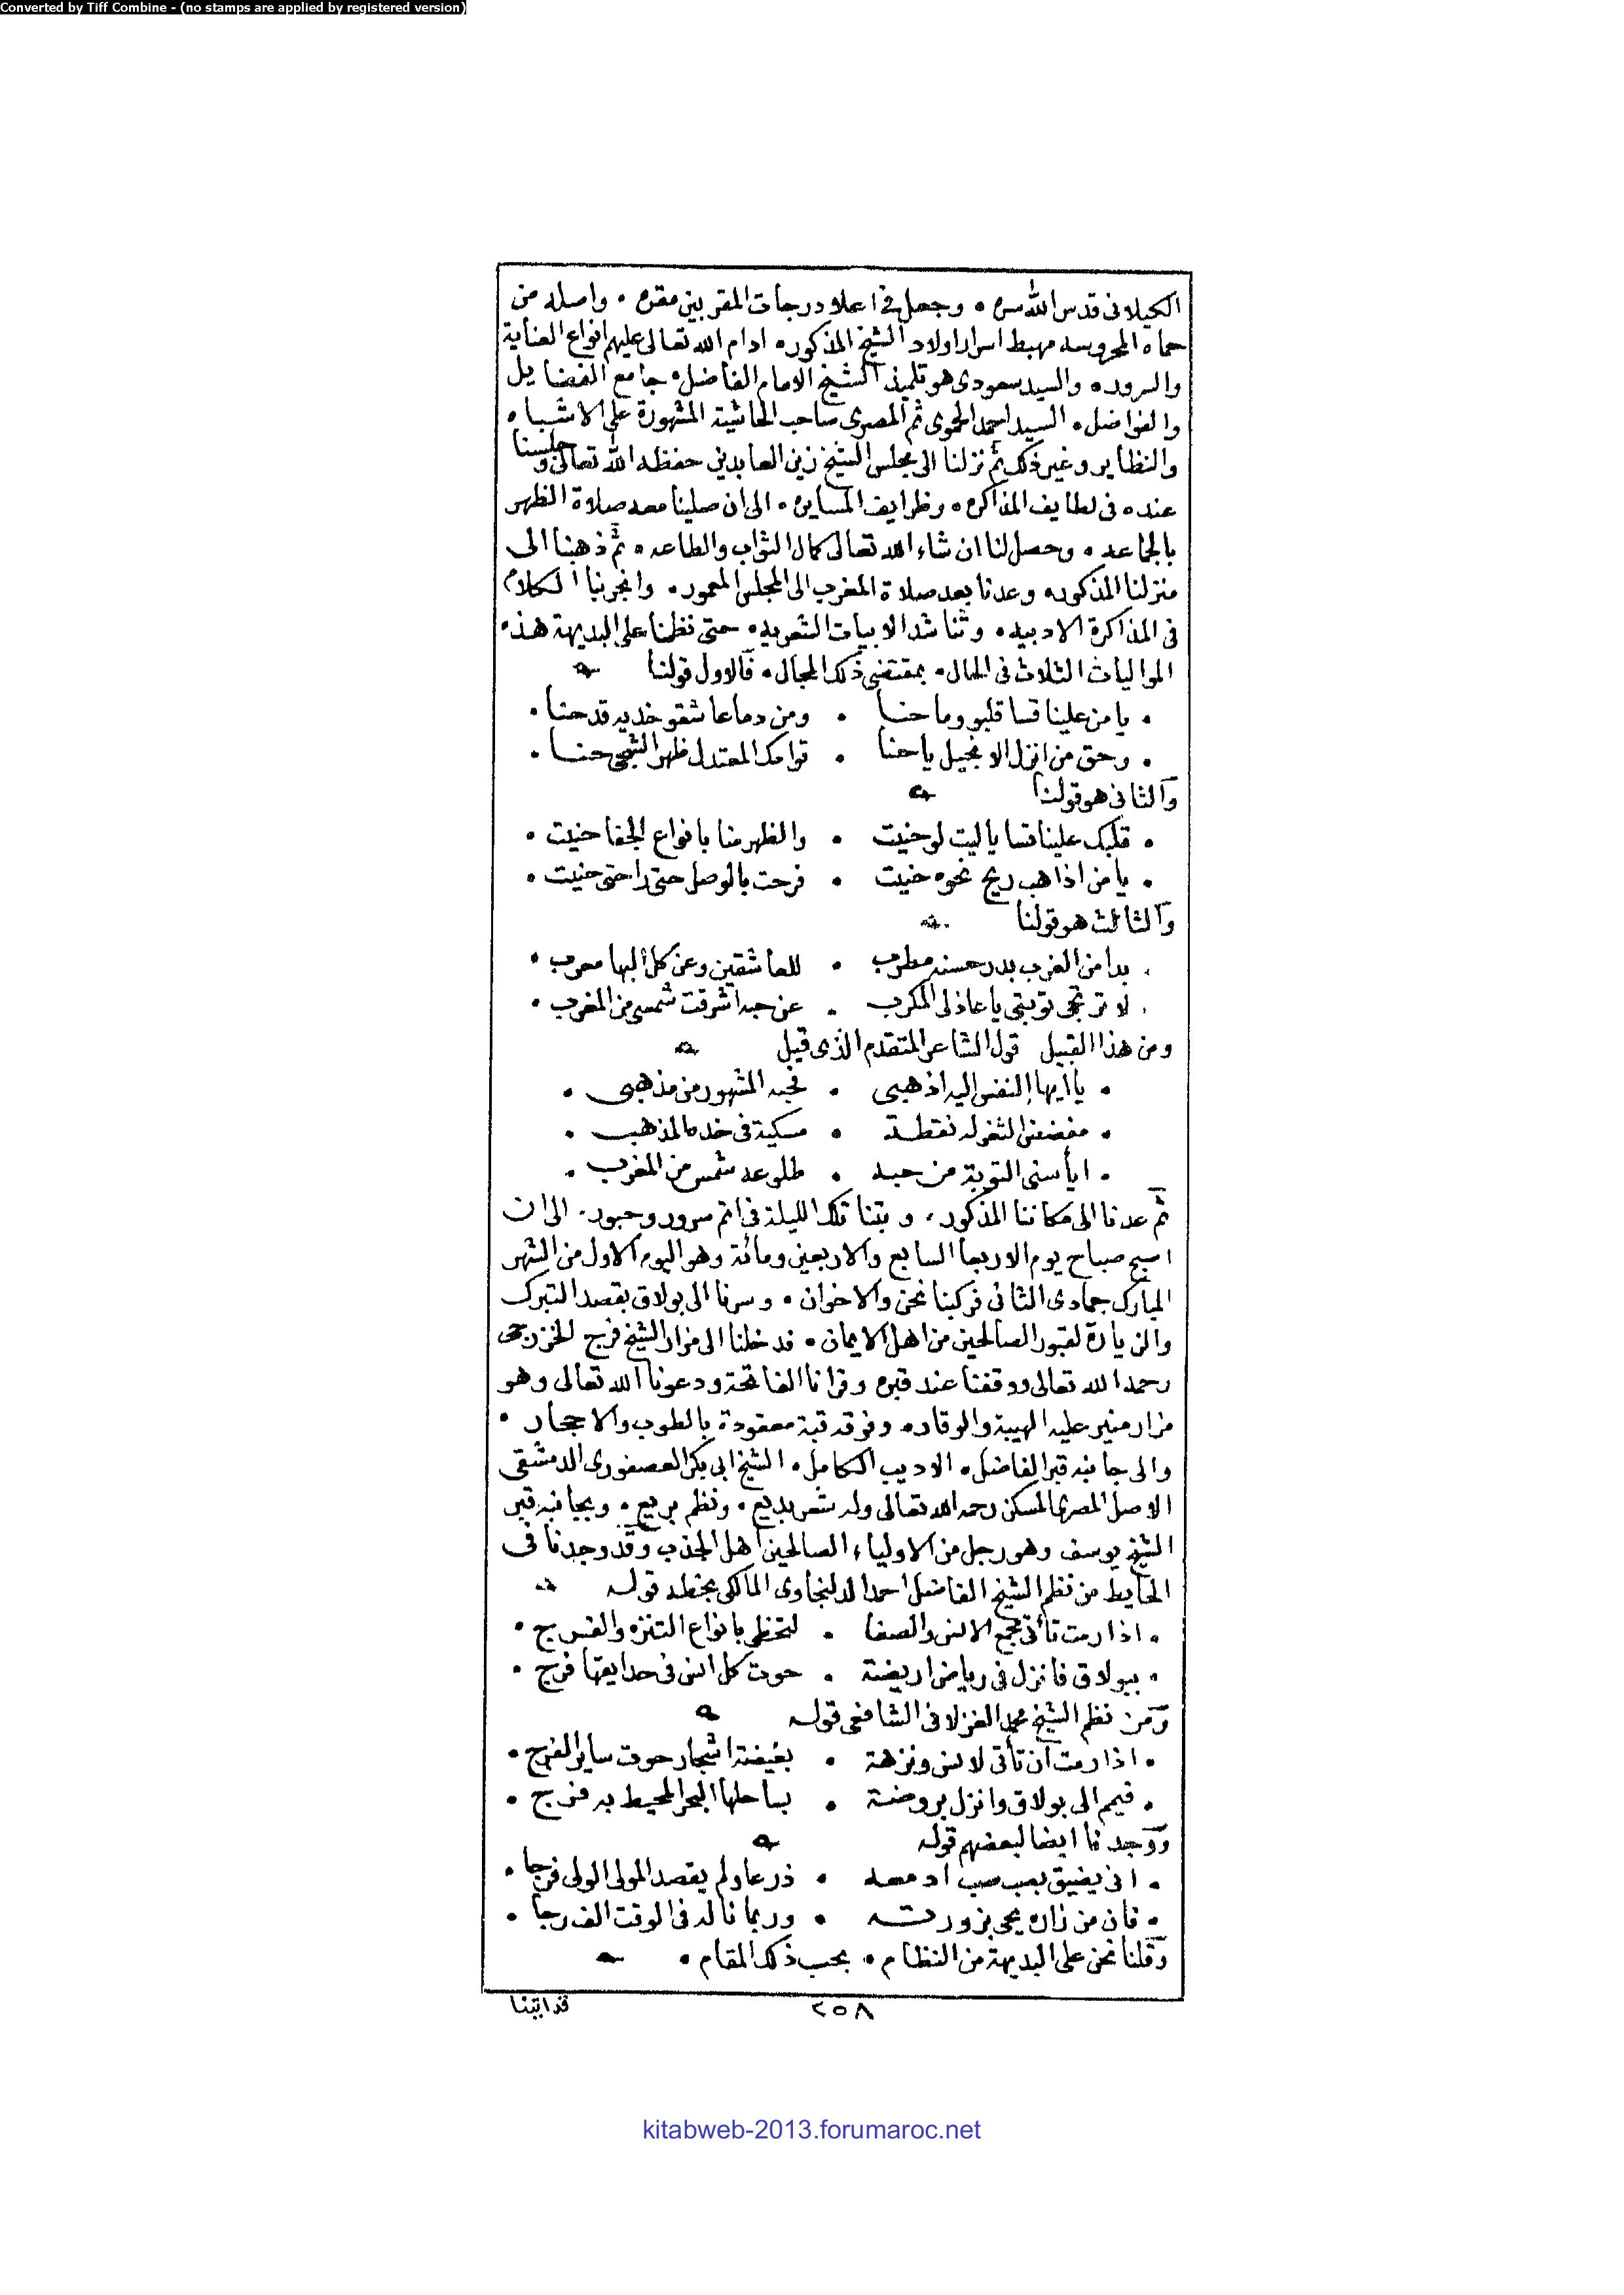 Converted by Tiff Combine - (no stamps are applied by registered version)
الكيلانى قدس الله سره • وجعل فى اعلا درجات المقربين مقره • واصله من
حماه المحروسه مهبط اسرار اولاد الشيخ المذكوره ادام الله تعالى عليهم انواع العناية
والسروره والسيد سعودى هو تلميذ الشيخ الامام الفاضل • جامع الفضايل
والفواضل • السيد احمد الحموى ثم المصرى صاحب الحاشية المشهورة على الاشباه
والنظاير وغير ذلك ثم نزلنا الى مجلس الشيخ زين العابدين حفظه الله تعالى وجلسنا
عنده فى لطايف المذاكره • وظرايف المسايره • الى ان صلينا معه صلاة الظهر
بالجماعه • وحصل لنا ان شاء الله تعالى كمال الثواب والطاعه • ثم ذهبنا الى
منزلنا المذكوره وعدنا بعد صلاة المغرب الى المجلس المعمور • وانجر بنا الكلام
فى المذاكرة الادبيه • وتناشد الابيات الشعريه • حتى نظمنا على البديهة هذه
المواليات الثلاث فى الحال • بمقتضى ذلك المجال • فالاول قولنا
• يا من علينا قسا قلبو وما حنا • ومن دما عاشقو خديه قد حنا •
• وحق من انزل الانجيل يا حنا • قوامك المعتدل ظهر الشجى حنا •
والثانى هو قولنا
• قلبك علينا قسا يا ليت لو حنيت • والظهر منا بانواع الجفا حنيت •
• يا من اذا هب ريح نحوه حنيت • فرحت بالوصل حتى راحتى حنيت •
والثالث هو قولنا
• بدا من الغرب بدر حسنه مطرب • للعاشقين وعن كل البها معرب •
• لا ترتجى توبتى يا عاذلى المكرب • عن حبه اشرقت شمسى من المغرب •
ومن هذا القبيل قول الشاعر المتقدم الذى قيل
• يا ايها النفس اليه اذهبى • فحبه المشهور من مذهبى •
• مفضض الثغر له نقطة • مسكية فى خده المذهب •
• ايأسنى التوبة من حبه • طلوعه شمس من المغرب •
ثم عدنا الى مكاننا المذكور • وبتنا تلك الليلة فى اتم سرور وحبور • الى ان
اصبح صباح يوم الاربعا السابع والاربعين ومائة وهو اليوم الاول من الشهر
المبارك جمادى الثانى فركبنا نحن والاخوان • وسرنا الى بولاق بقصد التبرك
والزيارة لقبور الصالحين من اهل الايمان • فدخلنا الى مزار الشيخ فرج الخزرجى
رحمه الله تعالى ووقفنا عند قبره وقرانا الفاتحة ودعونا الله تعالى وهو
مزار منير عليه الهيبة والوقاره وفوقه قبة معقودة بالطوب والاحجار •
والى جانبه قبر الفاضل • الاديب الكامل • الشيخ ابى بكر العصفورى الدمشقى
الاصل المصرى المسكن رحمه الله تعالى وله شعر بديع • ونظم مريع • وبجانبه قبر
الشيخ يوسف وهو رجل من الاولياء الصالحين اهل الجذب وقد وجدنا فى
الحايط من نظم الشيخ الفاضل احمد الدلنجاوى المالكى بخطه قوله
• اذا رمت تأتى مجمع الانس والصفا • لتحظى بانواع التنزه والفرج •
• ببولاق فانزل فى رياض اريضة • حوت كل انس فى حدايقها فرج •
ومن نظم الشيخ محمد الغزلانى الشافعى قوله
• اذا رمت ان تأتى لانس ونزهة • بغيضة اشجار حوت ساير الفرج •
• فيمم الى بولاق وانزل بروضة • بساحلها البحر المحيط به فرج •
ووجدنا ايضا لبعضهم قوله
• انى يضيق بصب صب ادمعه • ذرعا ولم يقصد المولى الولى فرجا •
• فان من زاره يحيى بزورته • وربما ناله فى الوقت الف رجا •
وقلنا نحن على البديهة من النظام • بحسب ذلك المقام •
٢٥٨
قد اتينا
kitabweb-2013.forumaroc.net